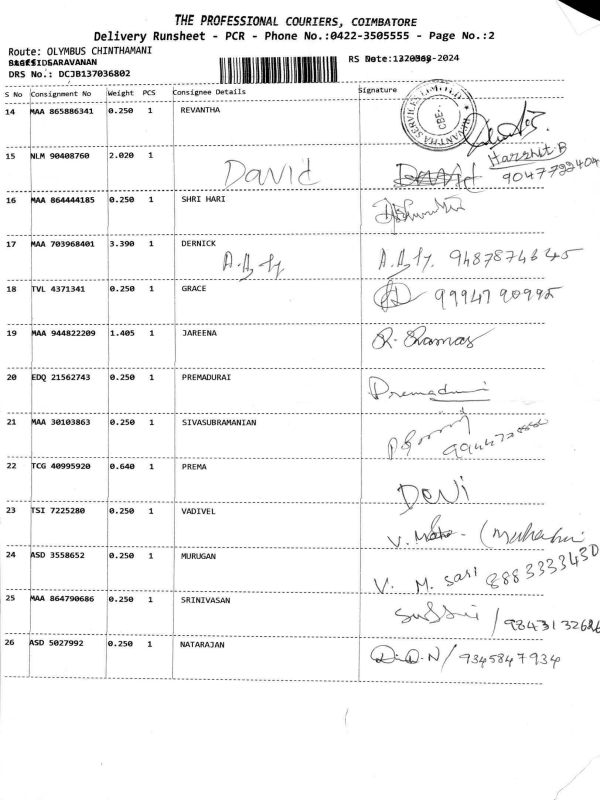 THE PROFESSIONAL COURIERS, COIMBATORE
Delivery Runsheet - PCR - Phone No.:0422-3505555 - Page No.:2
Route: OLYMBUS CHINTHAMANI
SARAVANAN
RS Date: -2024
DRS No.: DCJB137036802
S No Consignment No Weight PCS Consignee Details Signature
14 MAA 865886341 0.250 1 REVANTHA
CBE.
Harshit.B
15 NLM 90408760 2.020 1
David
David
16 MAA 864444185 0.250 1 SHRI HARI
17 MAA 703968401 3.390 1 DERNICK
18 TVL 4371341 0.250 1 GRACE
19 MAA 944822209 1.405 1 JAREENA
20 EDQ 21562743 0.250 1 PREMADURAI
Premadurai
21 MAA 30103863 0.250 1 SIVASUBRAMANIAN
22 TCG 40995920 0.640 1 PREMA
23 TSI 7225280 0.250 1 VADIVEL
24 ASD 3558652 0.250 1 MURUGAN
V. M. Sasi 8883333430
25 MAA 864790686 0.250 1 SRINIVASAN
26 ASD 5027992 0.250 1 NATARAJAN
9345847934